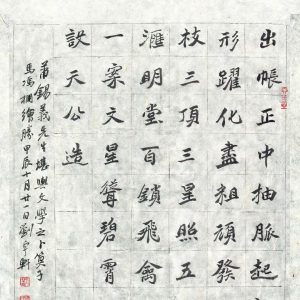 出帳正中抽脈起
形躍化盡粗頑發
枝三頂三星照五
滙明堂百鎖飛禽
一案文星聳碧霄
訣天公造
蕭錫義先生堪輿文學之卜算子
繪勝甲辰十月廿一日劉宇軒